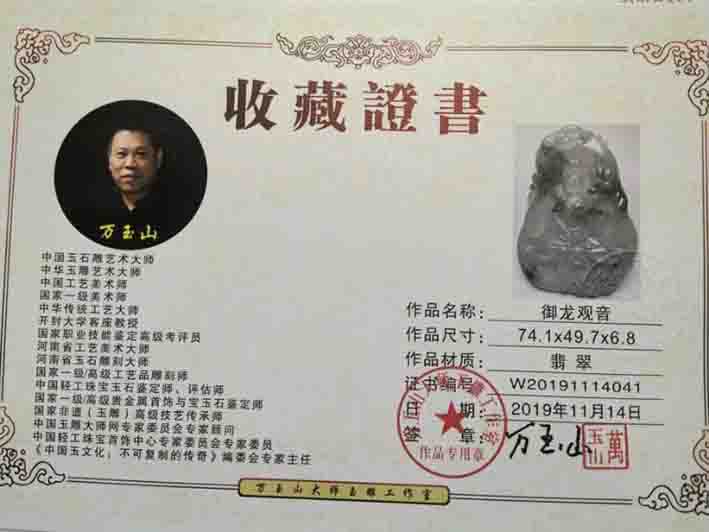 收藏證書
万玉山
中国玉石雕艺术大师
中华玉雕艺术大师
中国工艺美术师
国家一级美术师
中华传统工艺大师
开封大学客座教授
国家职业技能鉴定高级考评员
河南省工艺美术大师
河南省玉石雕刻大师
国家一级/高级工艺品雕刻师
中国轻工珠宝玉石鉴定师、评估师
国家一级/高级贵金属首饰与宝玉石鉴定师
国家非遗（玉雕）高级技艺传承师
中国玉雕大师网专家委员会专家顾问
中国轻工珠宝首饰中心专家委员会专家委员
《中国玉文化：不可复制的传奇》编委会专家主任
作品名称： 御龙观音
作品尺寸： 74.1x49.7x6.8
作品材质： 翡翠
证书编号： W20191114041
日 期： 2019年11月14日
签 章： 万玉山
萬玉山
作品专用章
万玉山大师玉雕工作室